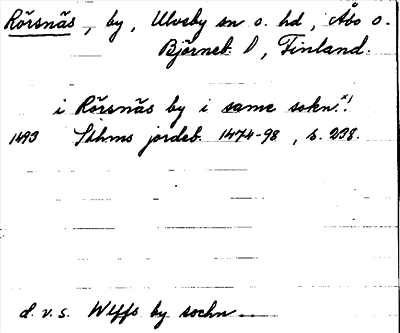 Rörsnäs, by, Ulvsby sn o. hd, Åbo o.
Björneb. l, Finland.
i Rörsnäs by i same sokn.x)
1493 Sthms jordeb. 1474-98, s. 238.
d. v. s. Wlffs by sochn